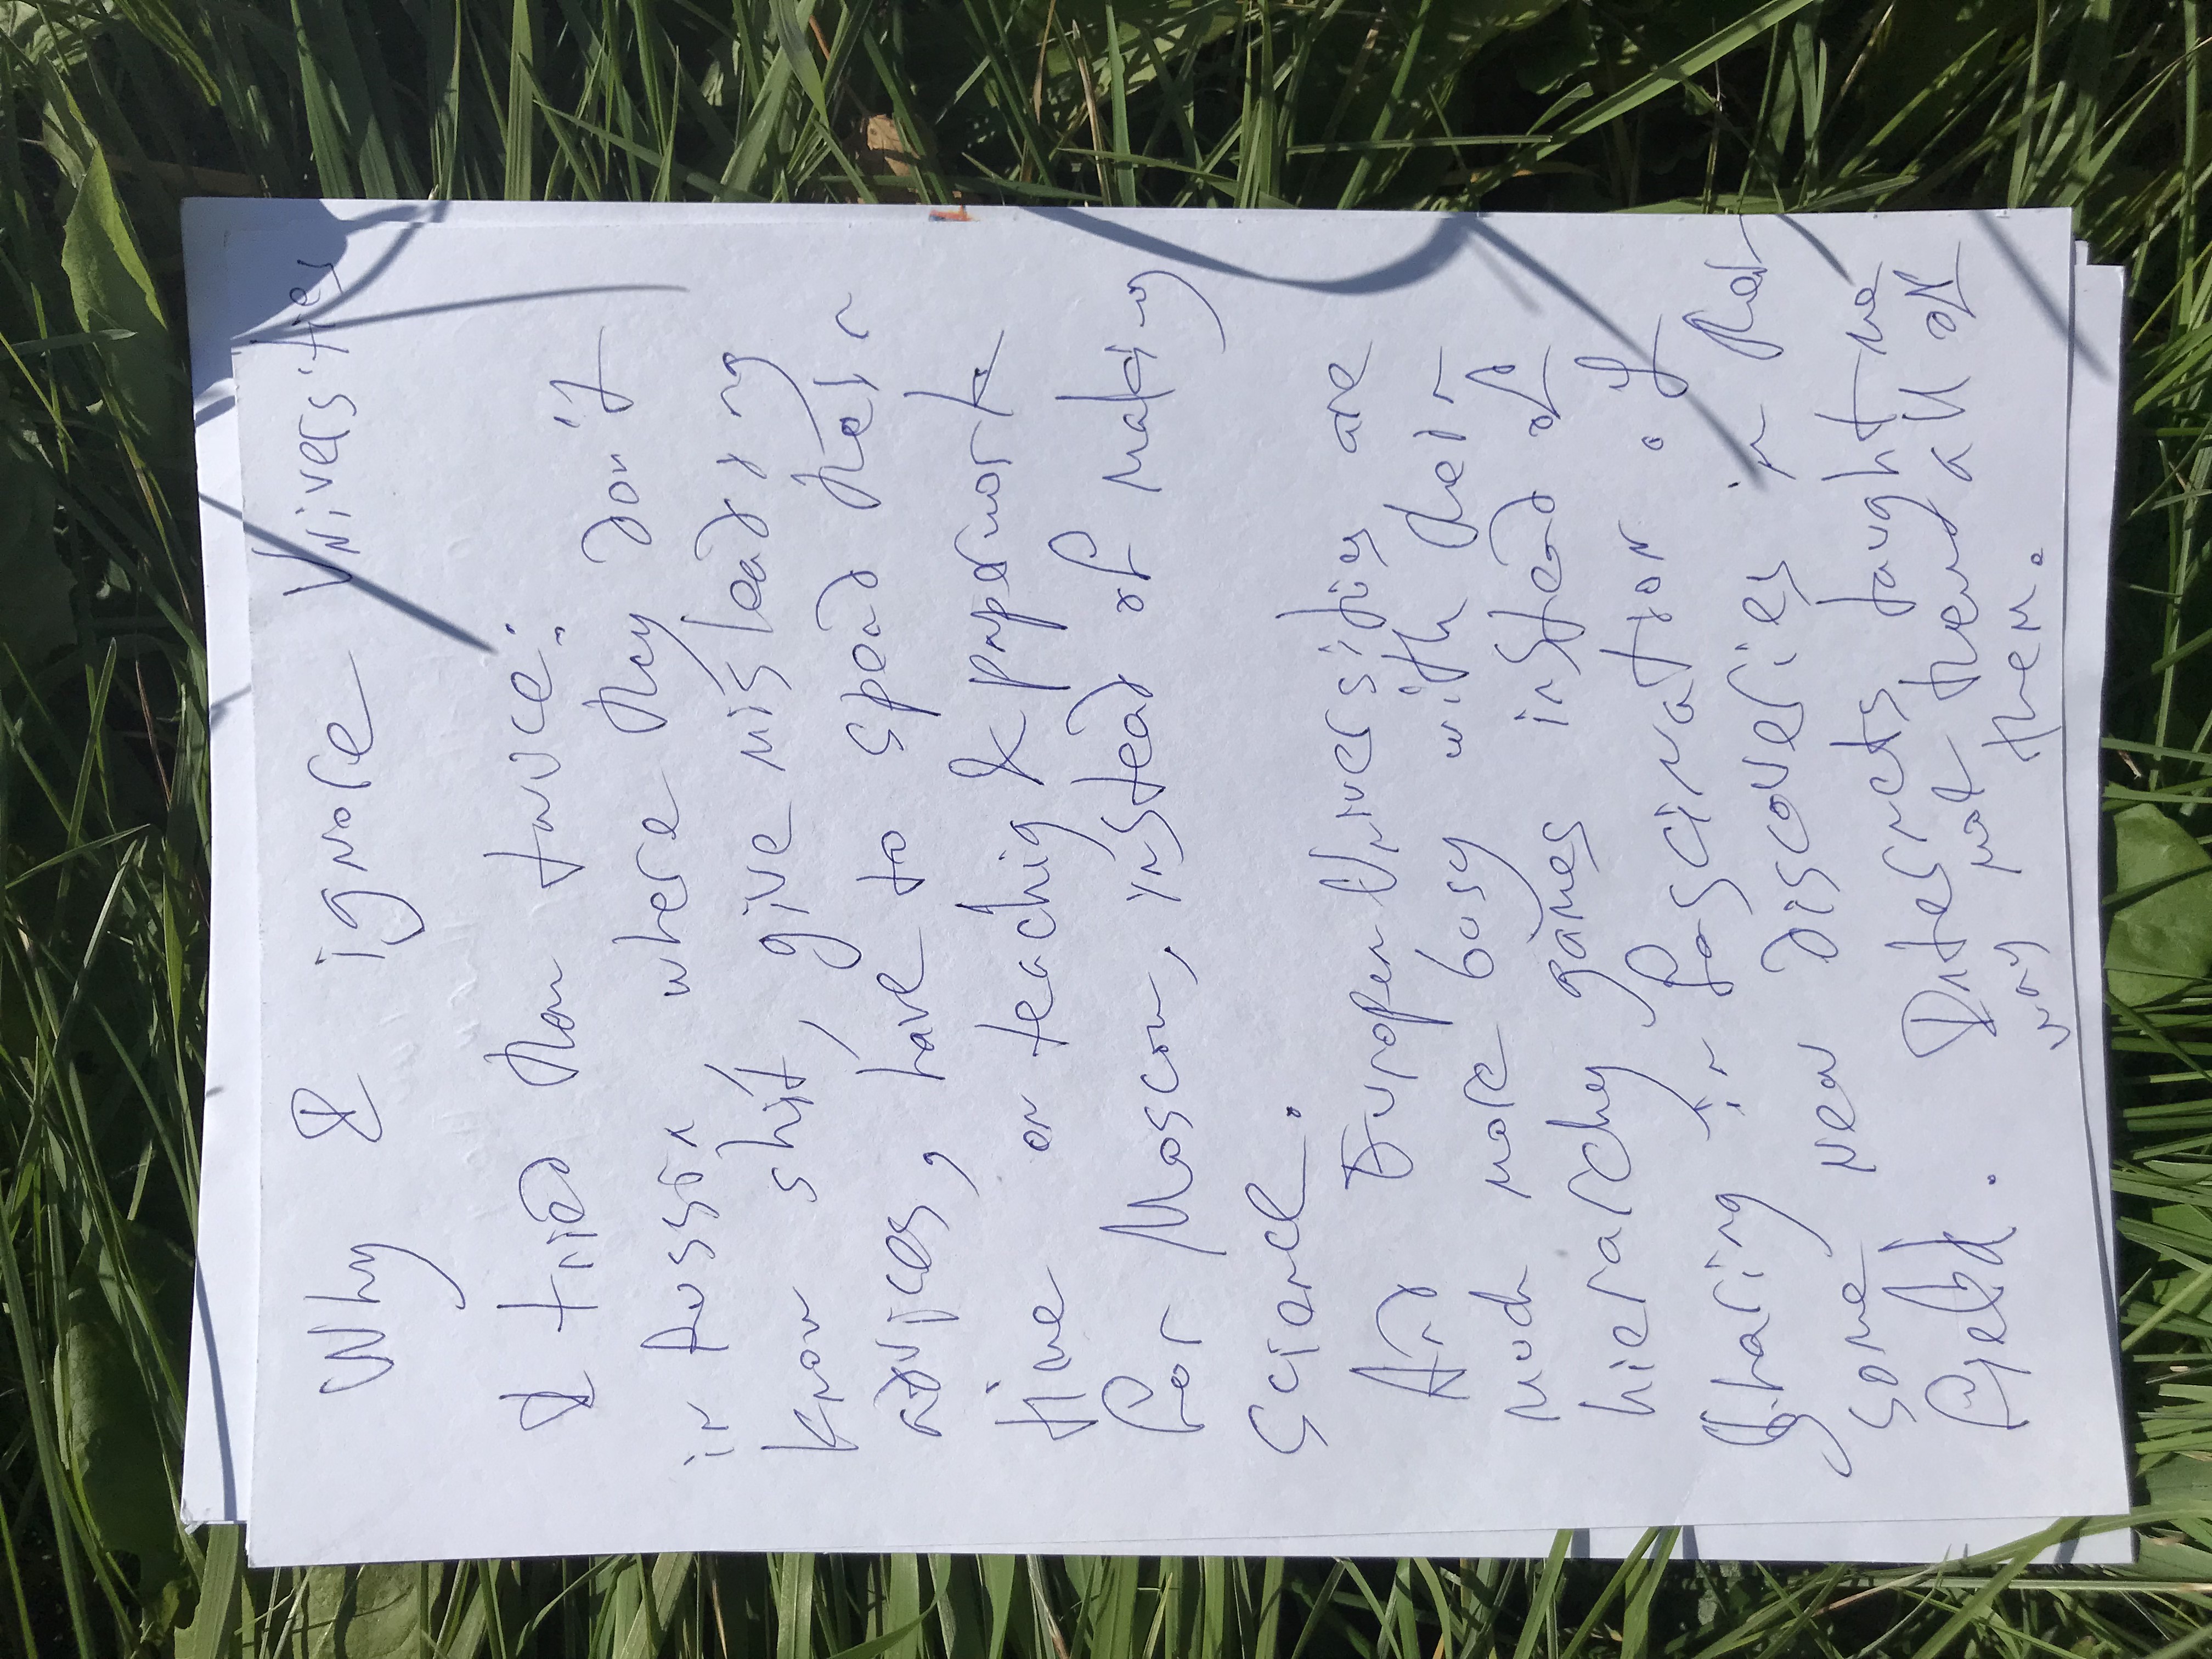 Why I ignore Universities
I tried them twice:
in Russia where they don't
know shit, give misleading
advices, have to spend their
time on teaching & paperwork
for Moscow, instead of making
science.
And European Universities are
much more busy with their
hierarchy games instead of
sharing in fascination of
some new discoveries in that
field. Internets taught me
most them all of
way them.